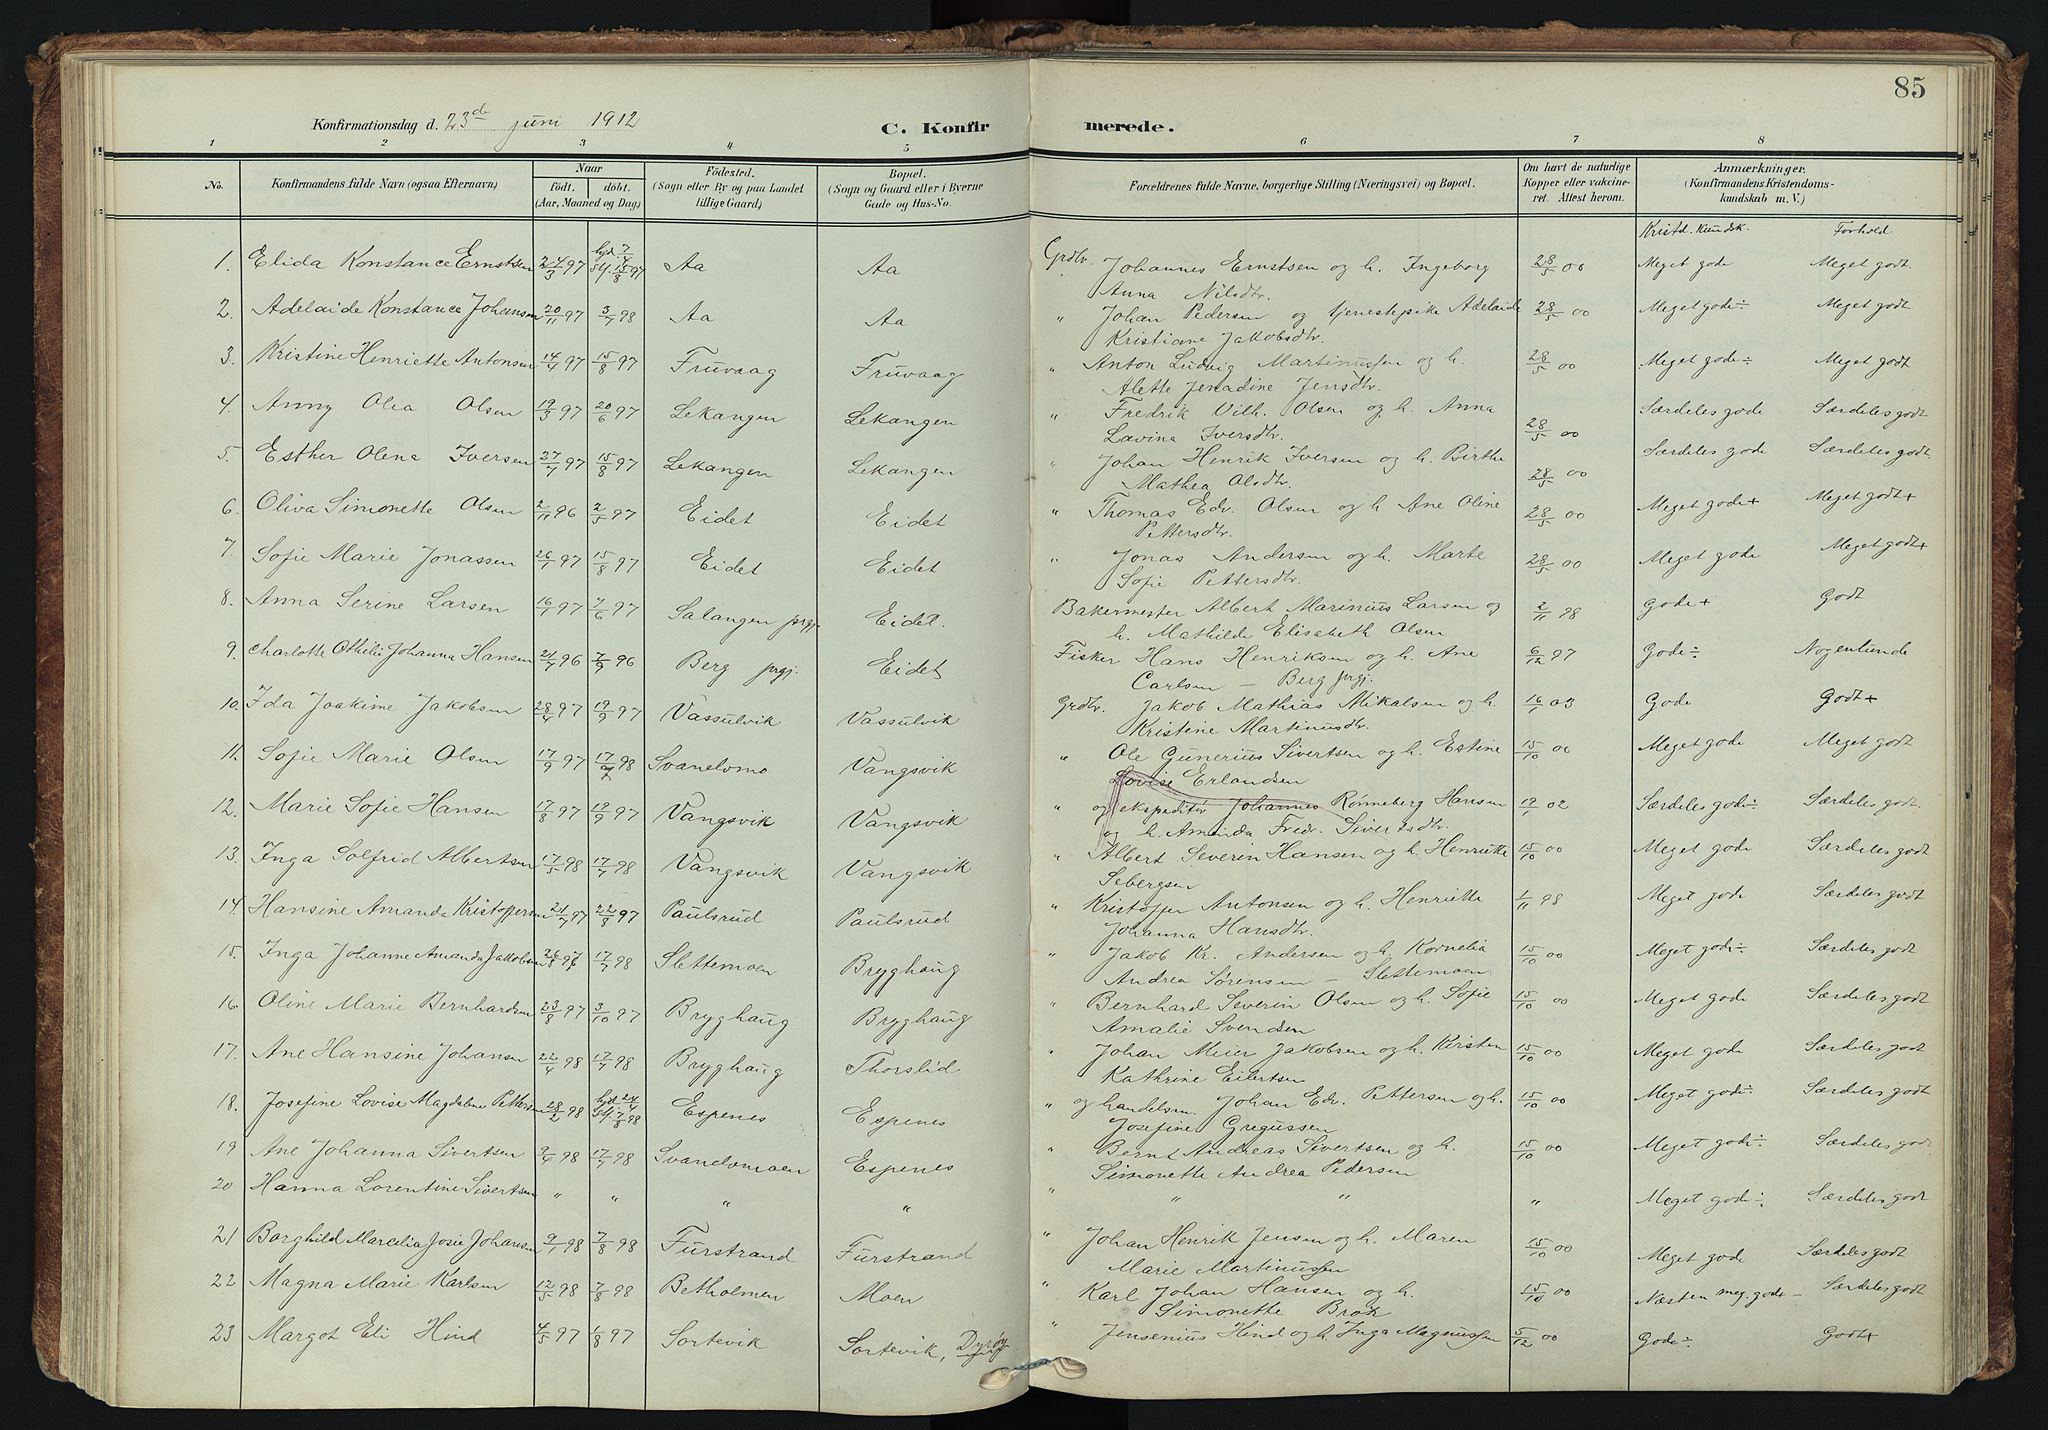 85
Konfirmationsdag d. 23de juni 1912
C. Konfirmerede.
1 2 3 4 5 6 7 8
No. Konfirmandens fulde Navn (ogsaa Efternavn) Naar Fødested. Bopæl. Forældrenes fulde Navne, borgerlige Stilling (Næringsvei) og Bopæl. Om havt de naturlige Anmærkninger.
født. døbt. (Sogn eller By og paa Landet (Sogn og Gaard eller i Byerne Kopper eller vakcine- (Konfirmandens Kristendoms-
(Aar, Maaned og Dag) tillige Gaard) Gade og Hus-No. ret. Attest herom. kundskab m. V.)
Kristd. kundsk. Forhold
1. Elida Konstance Ernstsen 24/3 97 hjd 7/4 st. 15/8 97 Aa Aa Grdbr. Johannes Ernstsen og h. Ingeborg 28/5 00 Meget gode Meget godt.
Anna Nilsdtr.
2. Adelaide Konstance Johansen 20/11 97 3/7 98 Aa Aa " Johan Pedersen og tjenestepike Adelaide 28/5 00 Meget gode ÷ Meget godt
Kristiane Jakobsdtr.
3. Kristine Henriette Antonsen 14/4 97 15/8 97 Fruvaag Fruvaag " Anton Ludvig Martinussen og h. 28/5 00 Meget gode ÷ Meget godt
Alette Jenadine Jensdtr.
4. Anny Olea Olsen 19/3 97 20/6 97 Lekangen Lekangen " Fredrik Vilh. Olsen og h. Anna 28/5 00 Særdeles gode Særdeles godt
Lavina Iversdtr.
5. Esther Olena Iversen 27/7 97 15/8 97 Lekangen Lekangen " Johan Henrik Iversen og h. Birthe 28/5 00 Særdeles gode Særdeles godt.
Mathea Olsdtr.
6. Oliva Simonette Olsen 2/11 96 2/5 97 Eidet Eidet " Thomas Edv. Olsen og h Ane Oline 28/5 00 Meget gode + Meget godt +
Pettersdtr.
7. Sofie Marie Jonassen 26/1 97 15/8 97 Eidet Eidet " Jonas Andersen og h. Marte 28/5 00 Meget gode Meget godt +
Sofie Pettersdtr.
8. Anna Serine Larsen 16/1 97 7/6 97 Salangen prgj. Eidet. Bakermester Albert Marinius Larsen og 2/11 98 Gode + Godt
h. Mathilde Elisabeth Olsen
9. Charlotte Othelie Johanna Hansen 21/7 96 7/9 96 Berg prgj. Eidet Fisker Hans Henriksen og h. Ane 6/12 97 Gode ÷ Nogenlunde
Carlsen – Berg prgj.
10. Ida Joakime Jakobsen 28/4 97 19/9 97 Vassulvik Vassulvik Grdbr. Jakob Mathias Mikalsen og h. 16/1 03 Gode Godt +
Kristine Martinusdtr.
11. Sofie Marie Olsen 17/9 97 17/7 98 Svanelvmo Vangsvik " Ole Gunerius Sivertsen og h. Estine 15/10 00 Meget gode Meget godt
Lovise Erlandsen
12. Marie Sofie Hansen 17/8 97 19/9 97 Vangsvik Vangsvik " og ekspeditør Johannes Rønneberg Hansen 19/1 02 Særdeles gode ÷ Særdeles godt
og h. Amanda Fredr. Sivertsdtr.
13. Inga Solfrid Albertsen 17/5 98 17/7 98 Vangsvik Vangsvik " Albert Severin Hansen og h. Henriette 15/10 00 Meget gode Særdeles godt
Sebergsen
14. Hansine Amanda Kristoffersen 21/7 97 22/8 97 Paulsrud Paulsrud " Kristoffer Antonsen og h. Henriette 1/11 98 Meget gode Særdeles godt
Johanna Hansdtr.
15. Inga Johanne Amanda Jakobsen 26/8 97 17/7 98 Slettemoen Bryghaug " Jakob Kr. Andersen og h. Kornelia 15/10 00 Meget gode ÷ Særdeles godt
Andrea Sørensen – Slettemoen
16. Oline Marie Bernhardsen 23/8 97 3/10 97 Bryghaug Bryghaug " Bernhard Severin Olsen og h. Sofie 15/10 00 Meget gode Særdeles godt
Amalie Svendsen
17. Ane Hansine Johansen 22/4 98 17/7 98 Bryghaug Thorslid " Johan Meier Jakobsen og h. Kirsten 15/10 00 Meget gode Særdeles godt
Kathrine Eilertsen
18. Josefine Lovise Magdalene Pettersen 28/2 98 hjd 24/4 st. 7/8 98 Espenes Espenes " og handelsm. Johan Edv. Pettersen og h. 15/10 00 Meget gode ÷ Særdeles godt
Josefine Gregussen
19 Ane Johanna Sivertsen 9/4 98 17/7 98 Svanelvmoen Espenes " Bernt Andreas Sivertsen og h. 15/10 00 Meget gode ÷ Særdeles godt
Simonette Andrea Pedersen
20 Hanna Lorentine Sivertsen " " " " " " " " Meget gode ÷ Særdeles godt
21 Borghild Marcelia Josie Johansen 9/1 98 7/8 98 Furstrand Furstrand " Johan Henrik Jensen og h. Maren 15/10 00 Meget gode Særdeles godt
Marie Martinussen
22 Magna Marie Karlsen 12/5 98 7/8 98 Betholmen Moen " Karl Johan Hansen og h. 15/10 00 Næsten meg. gode – Særdeles godt
Simonette Brox
23 Margot Eli Hind 4/5 97 1/8 97 Sortevik Sortevik, Dyrøy. " Jensenius Hind og h Inga Magnussen 5/12 00 Gode ÷ Godt +